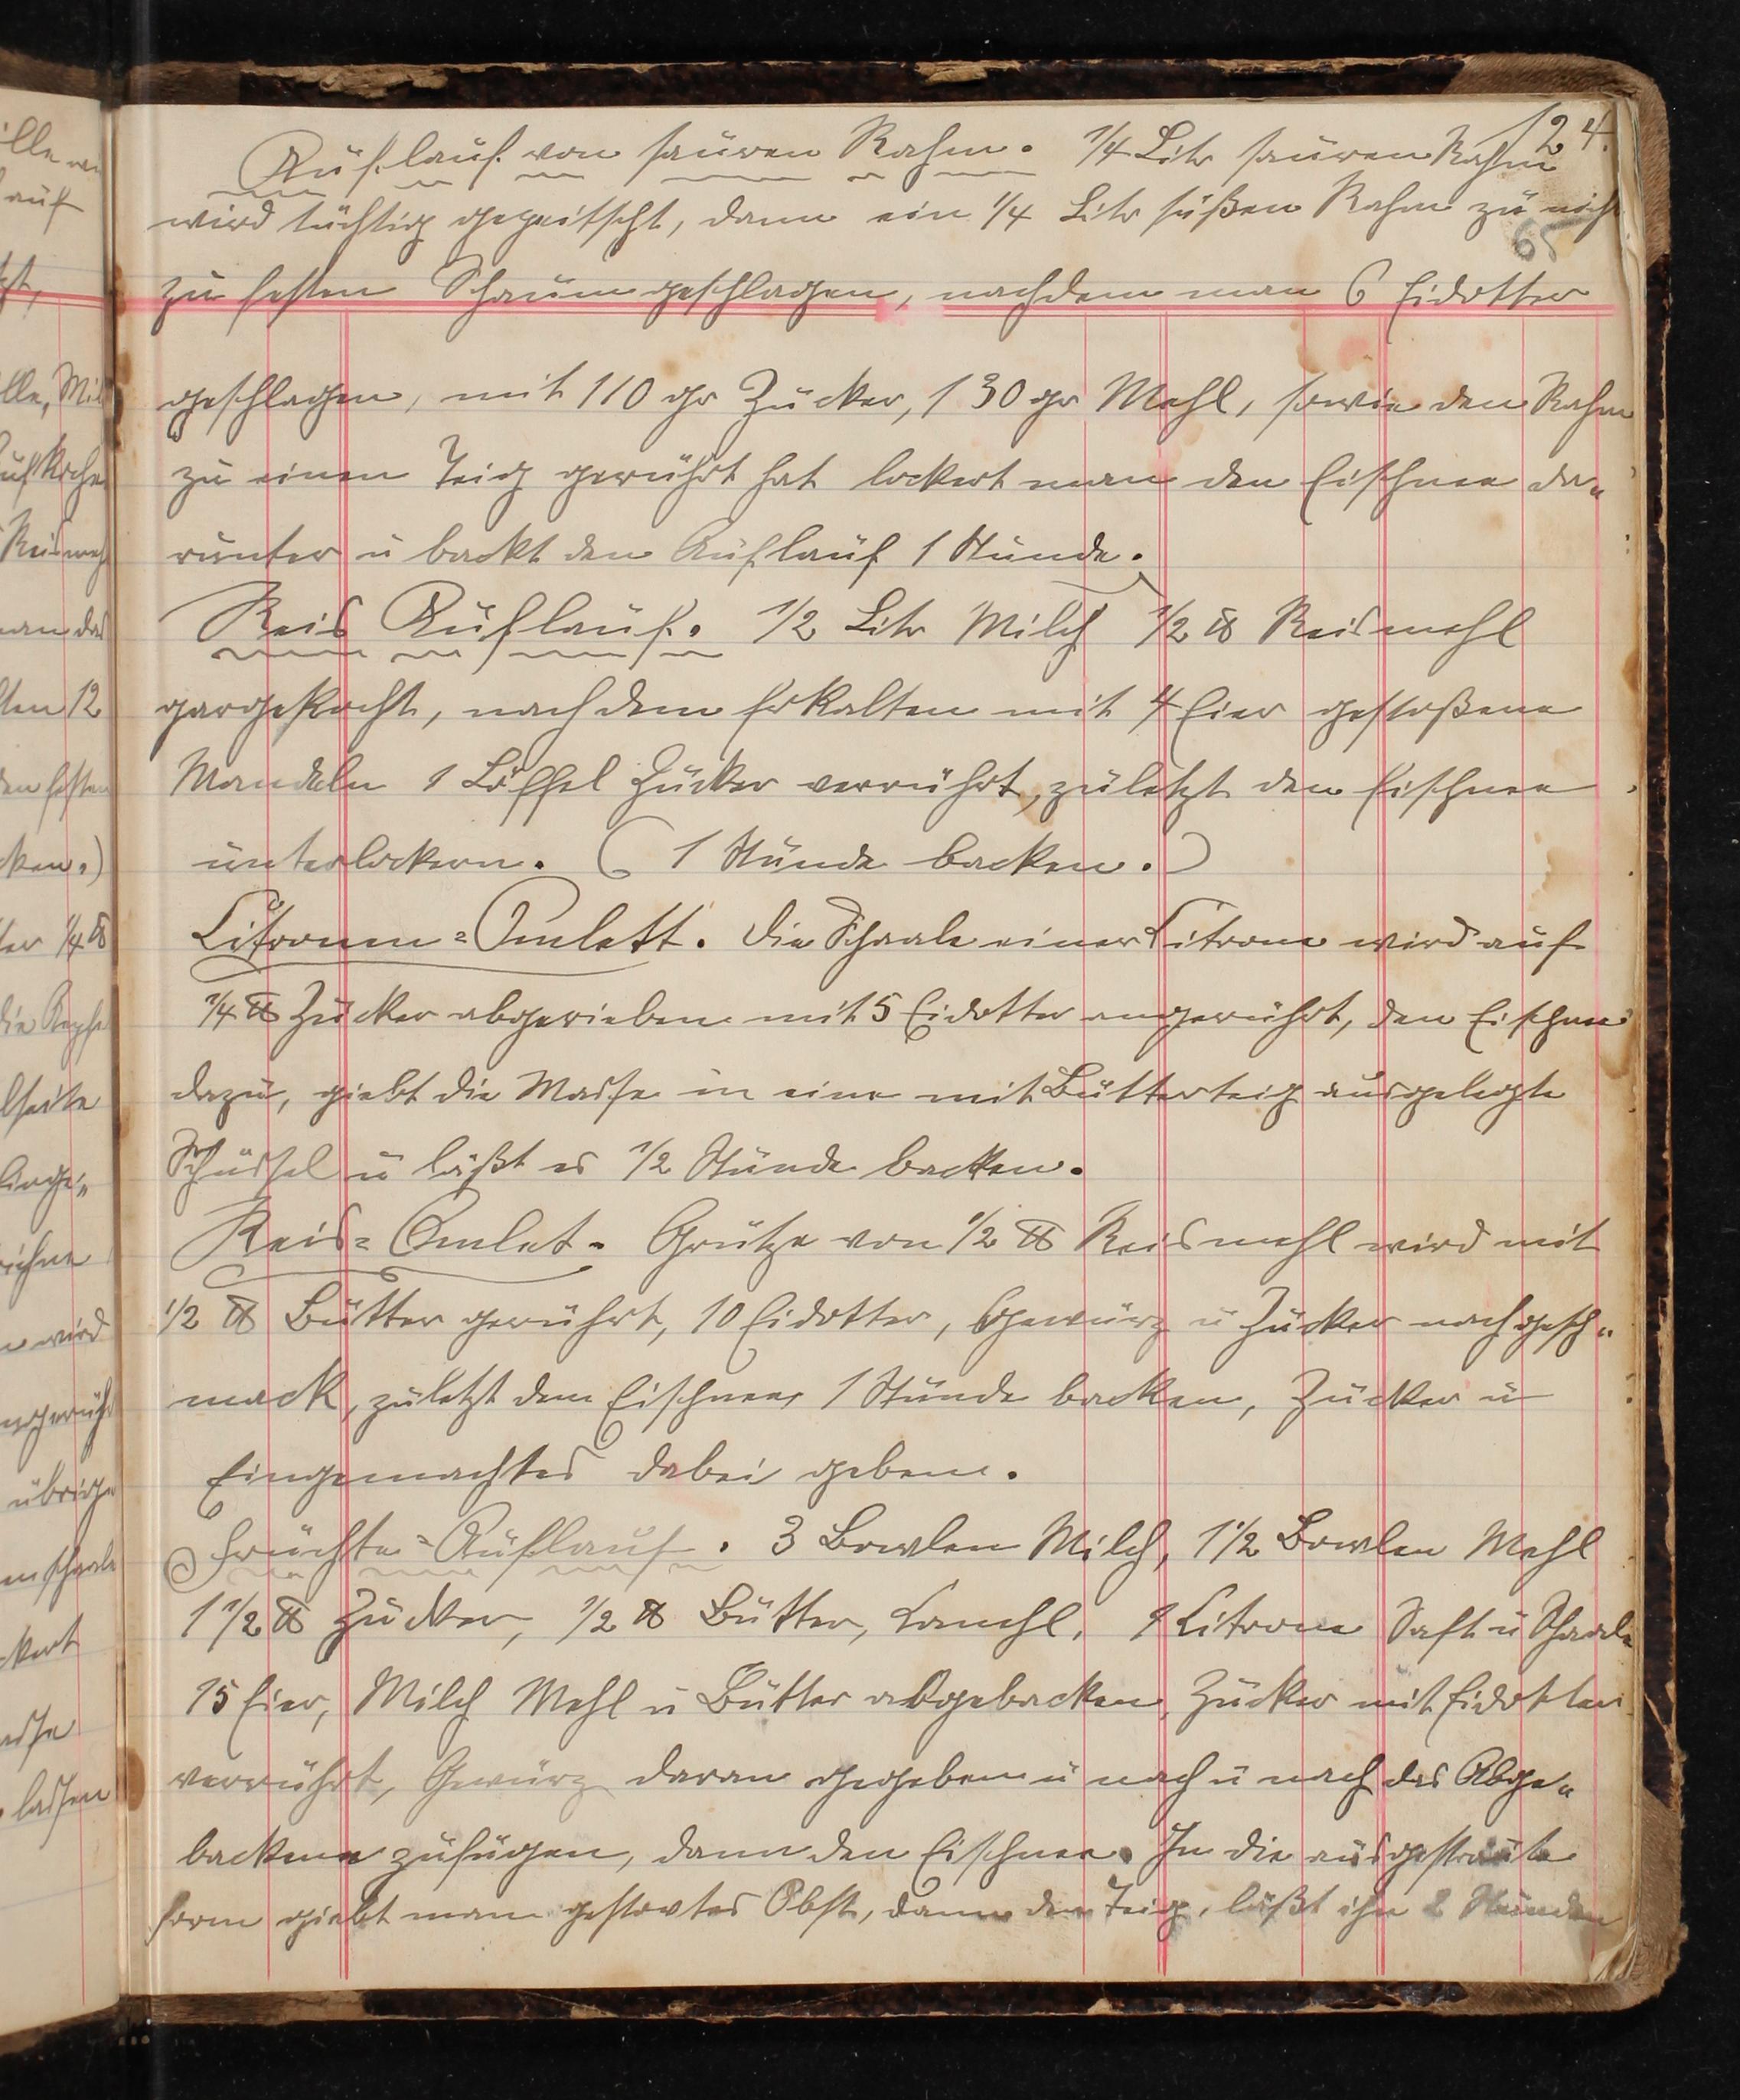 124.
Auflauf von sauren Rahm. 1/4 Litr sauren Rahm
wird tüchtig gepeitscht, dann ein 1/4 Litr süßen Rahm zu
65
zu festen Schaum geschlagen, nachdem man 6 Eidotter
geschlagen, mit 110 gr Zucker, 130 gr Mehl, sowie den Rahm
zu einen Teig gerührt hat lockert man den Eischnee da„
runter u backt den Auflauf 1 Stunde.
Reis Auflauf. 1/2 Litr Milch 1/2 ℔ Reismehl
gargekocht, nach dem Erkalten mit 4 Eier gestoßene
Mandeln 1 Löffel Zucker verrührt, zuletzt den Eischnee
unterlockern. (1 Stunde backen.)
Citronen=Omlett. Die Schaale einer Citrone wird auf
1/4 ℔ Zucker abgerieben mit 5 Eidotter angerührt, den Eischnee
dazu, giebt die Masse in eine mit Butterteig ausgelegte
Schüssel u läßt es 1/2 Stunde backen.
Reis=Omlet. Grütze von 1/2 ℔ Reismehl wird mit
1/2 ℔ Butter gerührt, 10 Eidotter, Gewürz u Zucker nach gesch„
mack, zuletzt dem Eischnee, 1 Stunde backen, Zucker u
Eingemachtes dabei geben.
Früchte=Auflauf. 3 Bowlen Milch, 1 1/2 Bowlen Mehl
1 1/2 ℔ Zucker, 1/2 ℔ Butter, Canehl, 1 Citrone Saft u Schaale
15 Eier, Milch Mehl u Butter abgebacken, Zucker mit Eidotter
verrührt, Gewürz daran gegeben u nach u nach das Abge„
backene zufügen, dann den Eischnee. In die ausgestreute
Form giebt man gestovtes Obst, dann den Teig, läßt ihn 2 Stunden